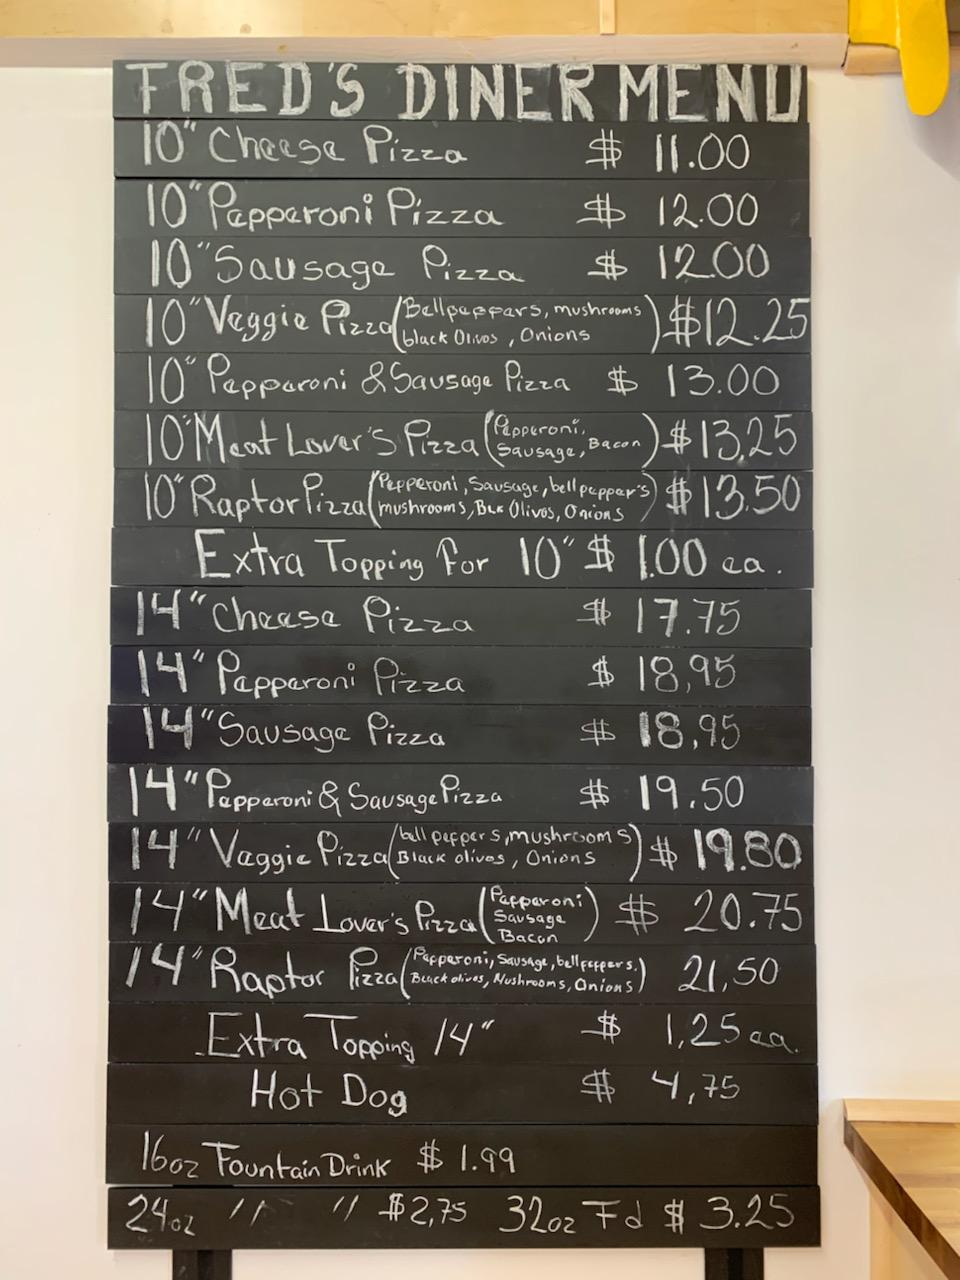 FRED'S DINER MENU
10" Cheese Pizza $ 11.00
10" Pepperoni Pizza $ 12.00
10" Sausage Pizza $ 12.00
10" Veggie Pizza (Bellpeppers, mushrooms
black Olives, Onions) $12.25
10" Pepperoni & Sausage Pizza $ 13.00
10" Meat Lover's Pizza (Pepperoni,
Sausage, Bacon) $13.25
10" Raptor Pizza (Pepperoni, Sausage, bell pepper's
mushrooms, BLK Olives, Onions) $13.50
Extra Topping for 10" $ 1.00 ea.
14" Cheese Pizza $ 17.75
14" Pepperoni Pizza $ 18,95
14" Sausage Pizza $ 18,95
14" Pepperoni & Sausage Pizza $ 19.50
14" Veggie Pizza (bell peppers, mushrooms
Black olives, Onions) $ 19.80
14" Meat Lover's Pizza (Pepperoni
Sausage
Bacon) $ 20.75
14" Raptor Pizza (Pepperoni, Sausage, bell peppers,
Black olives, Mushrooms, Onions) 21,50
Extra Topping 14" $ 1,25 ea.
Hot Dog $ 4,75
16oz Fountain Drink $ 1.99
24oz " " $2,75 32oz Fd $ 3.25